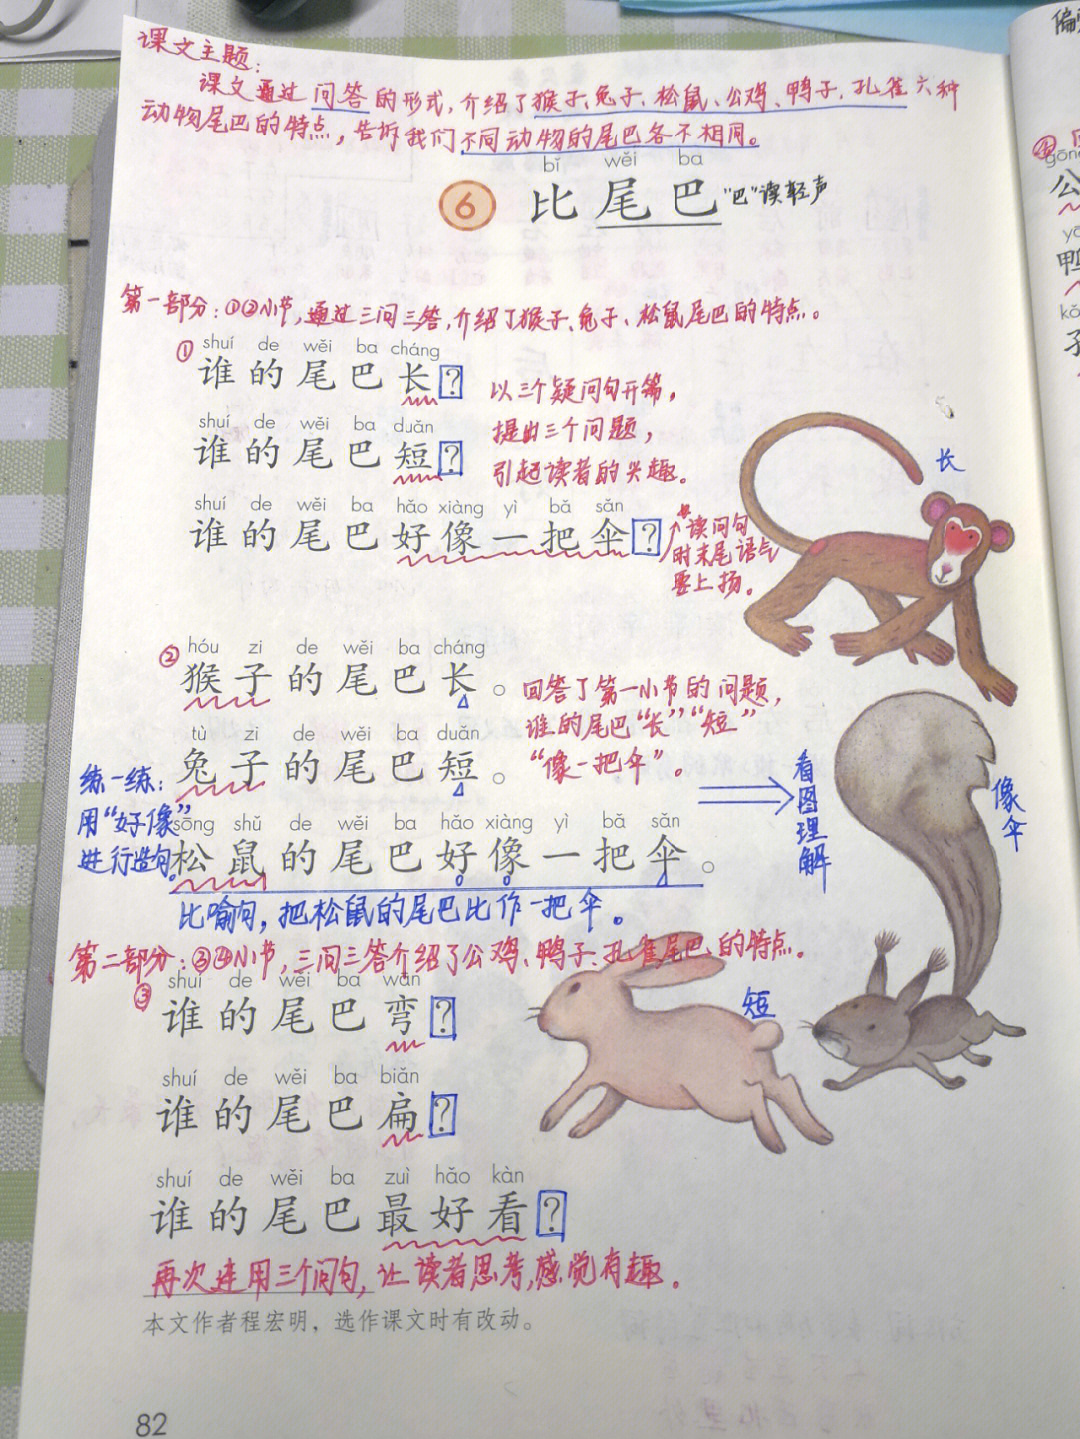 课文主题:
课文通过问答的形式,介绍了猴子、兔子、松鼠、公鸡、鸭子、孔雀六种
动物尾巴的特点,告诉我们不同动物的尾巴各不相同。
bǐ wěi ba
6 比尾巴 "巴"读轻声
第一部分:①②小节,通过三问三答,介绍了猴子、兔子、松鼠尾巴的特点。
① shuí de wěi ba cháng
谁的尾巴长?
以三个疑问句开篇,
shuí de wěi ba duǎn
提出三个问题,
谁的尾巴短?
引起读者的兴趣。
shuí de wěi ba hǎo xiàng yì bǎ sǎn
谁的尾巴好像一把伞?
读问句
时末尾语气
要上扬。
长
② hóu zi de wěi ba cháng
猴子的尾巴长。
回答了第一小节的问题,
谁的尾巴"长""短"
"像一把伞"。
tù zi de wěi ba duǎn
兔子的尾巴短。
练一练:
用"好像"
进行造句。
sōng shǔ de wěi ba hǎo xiàng yì bǎ sǎn
松鼠的尾巴好像一把伞。
看图理解
像伞
比喻句,把松鼠的尾巴比作一把伞。
第二部分:③④小节,三问三答介绍了公鸡、鸭子、孔雀尾巴的特点。
③ shuí de wěi ba wān
谁的尾巴弯?
短
shuí de wěi ba biǎn
谁的尾巴扁?
shuí de wěi ba zuì hǎo kàn
谁的尾巴最好看?
再次连用三个问句,让读者思考,感觉有趣。
本文作者程宏明,选作课文时有改动。
82
gōng
公
鸭
子